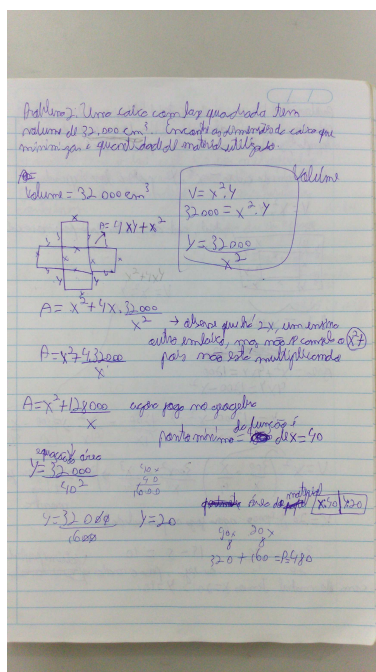 Problema 2. Uma caixa com base quadrada tem
volume de 32.000 cm³. Encontre as dimensões da caixa que
minimizam a quantidade de material utilizado.
Volume = 32 000 cm³
Volume
V = x².y
32000 = x².y
y = 32000
x²
A = 4xy + x²
A = x² + 4x.32000
x²
→ observe que há 2x, um em cima
outro embaixo, mas não se cancela o x²+
pois não está multiplicando
A = x² + 4.32000
x
A = x² + 128000
x
agora jogo no geogebra
ponto mínimo da função é
de x = 40
equação área
y = 32 000
40²
40x
40
1600
y = 32 000
1600
y = 20
área do material
x=40 y=20
40x 20x
8 8
320 + 160 = 480